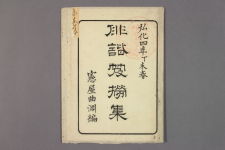 弘化四年丁未春
俳諧發撈集
憲屋曲淵編